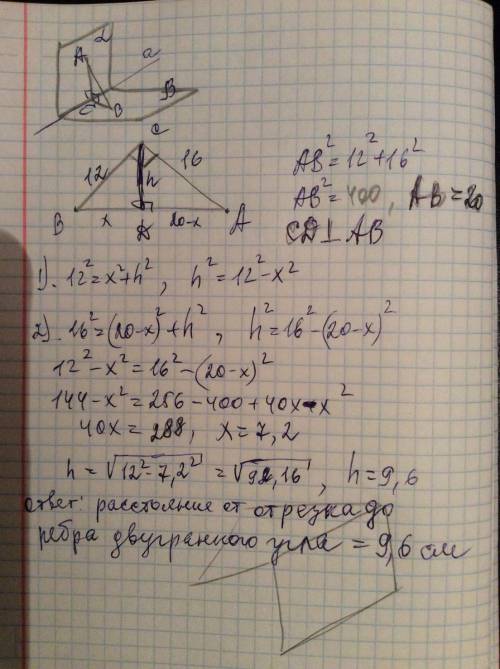 A
α
a
C
B
B
C
12
16
h
B
x
D
20-x
A
AB² = 12² + 16²
AB² = 400, AB = 20
CD ⊥ AB
1). 12² = x² + h², h² = 12² - x²
2). 16² = (20-x)² + h², h² = 16² - (20-x)²
12² - x² = 16² - (20-x)²
144 - x² = 256 - 400 + 40x - x²
40x = 288, x = 7,2
h = √12² - 7,2² = √92,16, h = 9,6
ответ: расстояние от отрезка до
ребра двугранного угла = 9,6 см